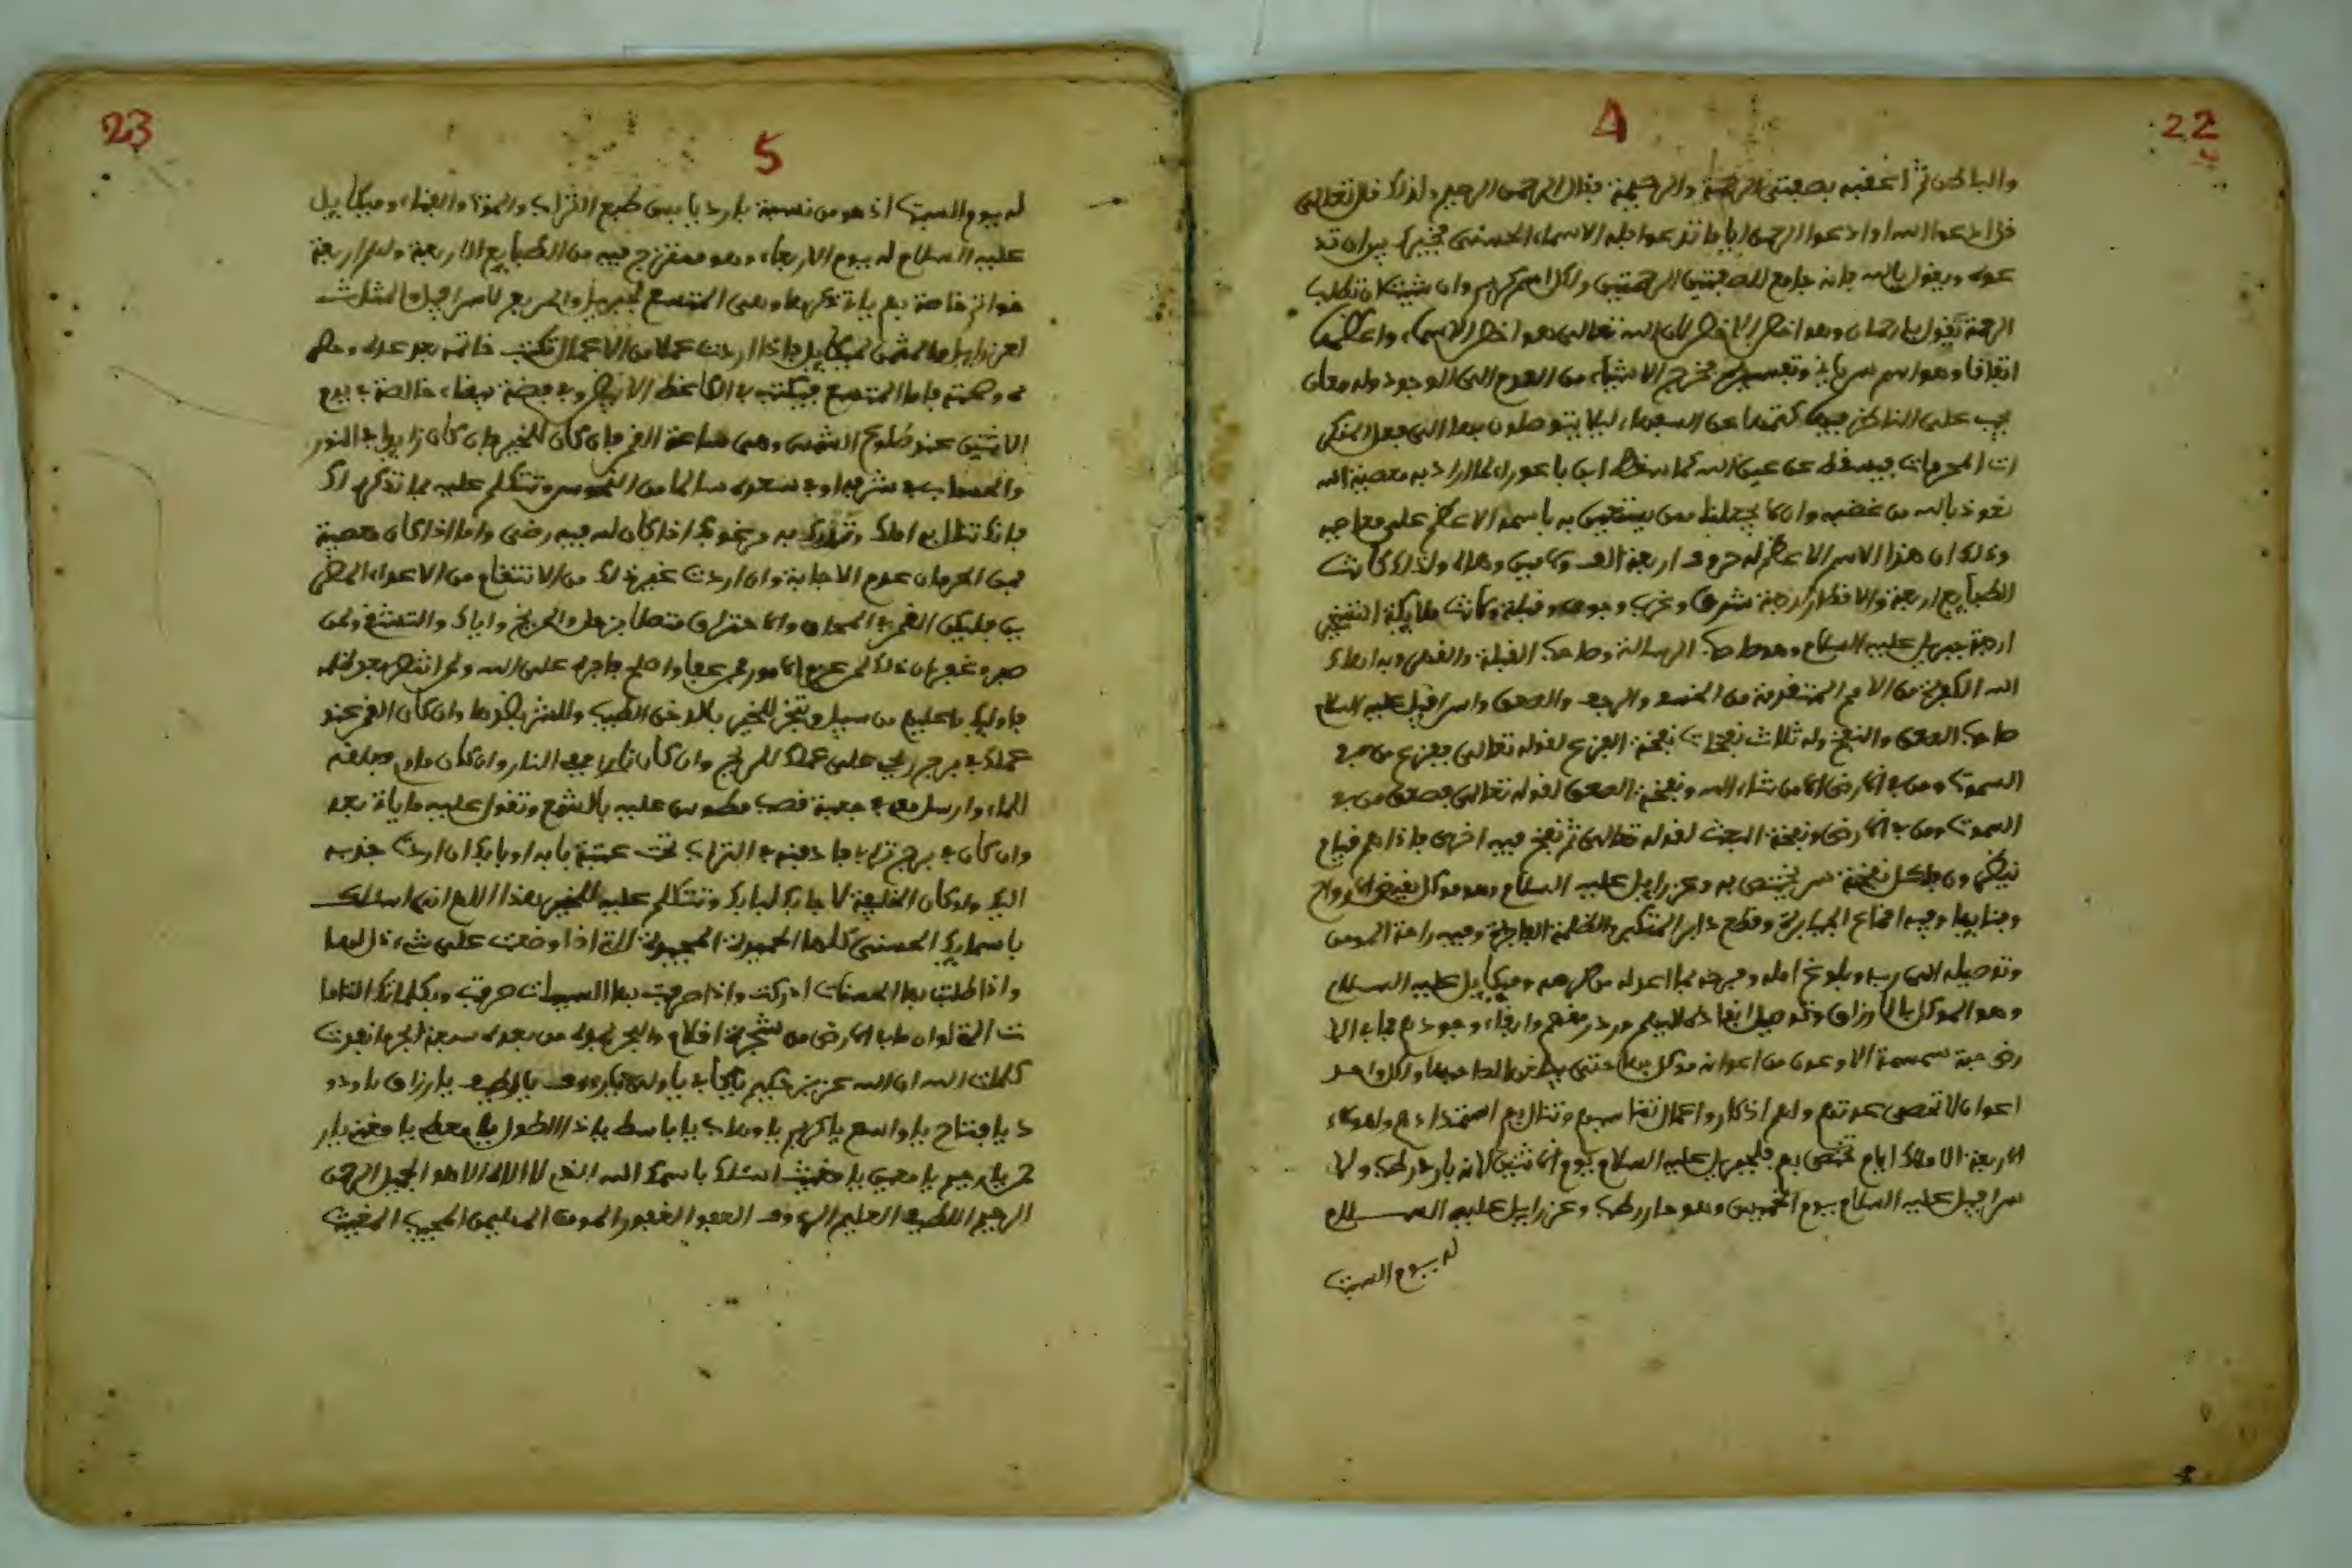 22
4
والباطن ثم اعقبه بصفتي الرحمة والرحيمة فقال الرحمن الرحيم ولذلك قال تعالى
قل ادعوا الله او ادعوا الرحمن ايا ما تدعوا فله الاسماء الحسنى فخيرك بين ان تد
عوه وبقول يالله فانه جامع للصفتين الرحمتين ولكل اسم كريم وان شئت ان تطلب
الرحمة تقول يا رحمان وهو اخطر لان الله تعالى هو اخطر الاسماء واعظمها
اتفاقا وهو اسم سرياني وتفسيره مخرج الاشياء من العدم الى الوجود وله معان
يجب على الناظر فيها كتمها عن السفهاء ليلا يتوصلون بها الى فعل المنكر
ات المحرمات فيسقط عن عين الله كما سقط ابن باعوراء لما اراد به معصية الله
نعوذ بالله من غضبه وان لا يجعلنا ممن يستعين به باسمه الاعظم على معاصيه
وذلك ان هذا الاسم الاعظم له حروف اربعة الف ولامين وهاء ولذلك كانت
الطبايع اربعة والاقطار اربعة شرق وغرب وجوف وقبلة وكانت ملايكة التسخير
اربعة جبريل عليه السلام وهو صاحب الرسالة وصاحب القبلة والفضل وبه اهلك
الله الكفرة من الامم المتقدمة من الخسف والرجف والصعق واسرافيل عليه السلام
صاحب الصعق والنفخ وله ثلاث نفخات نفخة الفزع لقوله تعالى ففزع من في
السموت ومن في الارض الا من شاء الله ونفخة الصعق لقوله تعالى فصعق من في
السموت ومن في الارض ونفخة البعث لقوله تعالى ثم نفخ فيه اخرى فاذا هم قيام
ينظرون ولكل نفخة سر يختص به وعزراييل عليه السلام وهو موكل بقبض الارواح
وفنايها وفيه اقماع الجبابرة وقطع دابر المتكبر والظلمة الفاجرة وفيه راحة المومن
وتوصيله الى ربه وبلوغ امله وفرحه بما اعد له من كرمه وميكاييل عليه السلام
وهو الموكل بالارزاق وتوصيل انفاذها اليهم ودر رزقهم وابقاء وجودهم فما في الا
رض حبة سمسمة الا وعون من اعوانه موكل بها حتى يدفعها لصاحبها ولكل واحد
اعوان لا تحصى عدتهم ولهم اذكار واعمال تناسبهم وتنال بهم استمدادهم ولهولاء
الاربعة الاملاك ايام تختص بهم فلجبريل عليه السلام يوم الاثنين لانه بارد رطب ولا
سرافيل عليه السلام يوم الخميس وهو حار رطب وعزراييل عليه السلام
له يوم السبت
23
5
له يوم السبت اذ هو من نسبة بارد يابس طبع التراب والموت والفناء وميكاييل
عليه السلام له يوم الاربعاء وهو ممتزج فيه من الطبايع الاربعة ولهم اربعة
خواتم خاصة بهم ياتي ذكرها وهي المتسع لجبريل والمربع لاسرافيل والمثلث
لعزراييل والمثمن لميكاييل فاذا اردت عملا من الاعمال تكتب خاتمه بعد عدله وحلو
له وصحته فاما المتسع فيكتب في الكاغظ الازرق وفي فضة بيضاء خالصة في يوم
الاثنين عند طلوع الشمس وهي ساعة القمر فان كان للخير فان كان زايدا في النور
والحساب في شرفه او في سعوده سالما من النحوس وتتكلم عليه بما تذكره لك
فانك تنال به املك وتدرك به مرغوبك اذا كان لله فيه رضى واما اذا كان معصية
فمن الحرمان عدم الاجابة وان اردت غير ذلك من الانتقام من الاعداء المضر
ين فليكن القمر في المحاق والاحتراق متصلا بزحل والمريخ واياك والتشفي ولمن
صبر وغفر ان ذلك لمن عزم الامور فمن عفا واصلح فاجره على الله ولمن انتصر بعد ظلمه
فاوليك ما عليهم من سبيل وتبخر للخير بالدخن الطيب وللشر بضدها وان كان القمر عند
عملك في برج ريحي على عملك للريح وان كان ناريا في النار وان كان مايي فالقه
للماء وارسل معه في جعبة قصب مطموس عليه بالشمع وتقول عليه ما ياتي بعد
وان كان في برج ترابي فادفنه في التراب تحت عتبة بابه او بابك ان اردت جذبه
اليك ولو كان الخليفة لاجابك لبابك وتتكلم عليه للخير بهذا اللهم اني اسئلك
باسمايك الحسنى كلها الحميدة المجيدة التي اذا وضعت على شيء ذل لها
واذا طلبت بها الحسنات ادركت واذا صرفت بها السييات صرفت وبكلماتك التاما
ت التي لو ان ما في الارض من شجرة اقلام والبحر يمده من بعده سبعة ابحر ما نفدت
كلمات الله ان الله عزيز حكيم يا كافي يا ولي يا رووف يا لطيف يا رزاق يا ودو
د يا فتاح يا واسع يا كريم يا وهاب يا باسط يا ذا الطول يا معطي يا مغني يا ر
حمن يا رحيم يا معين يا مغيث اسئلك باسمك الله الذي لا اله الا هو الجميل الرحمن
الرحيم اللطيف العليم الرووف العفو الغفور المومن المهيمن المجيب المغيث